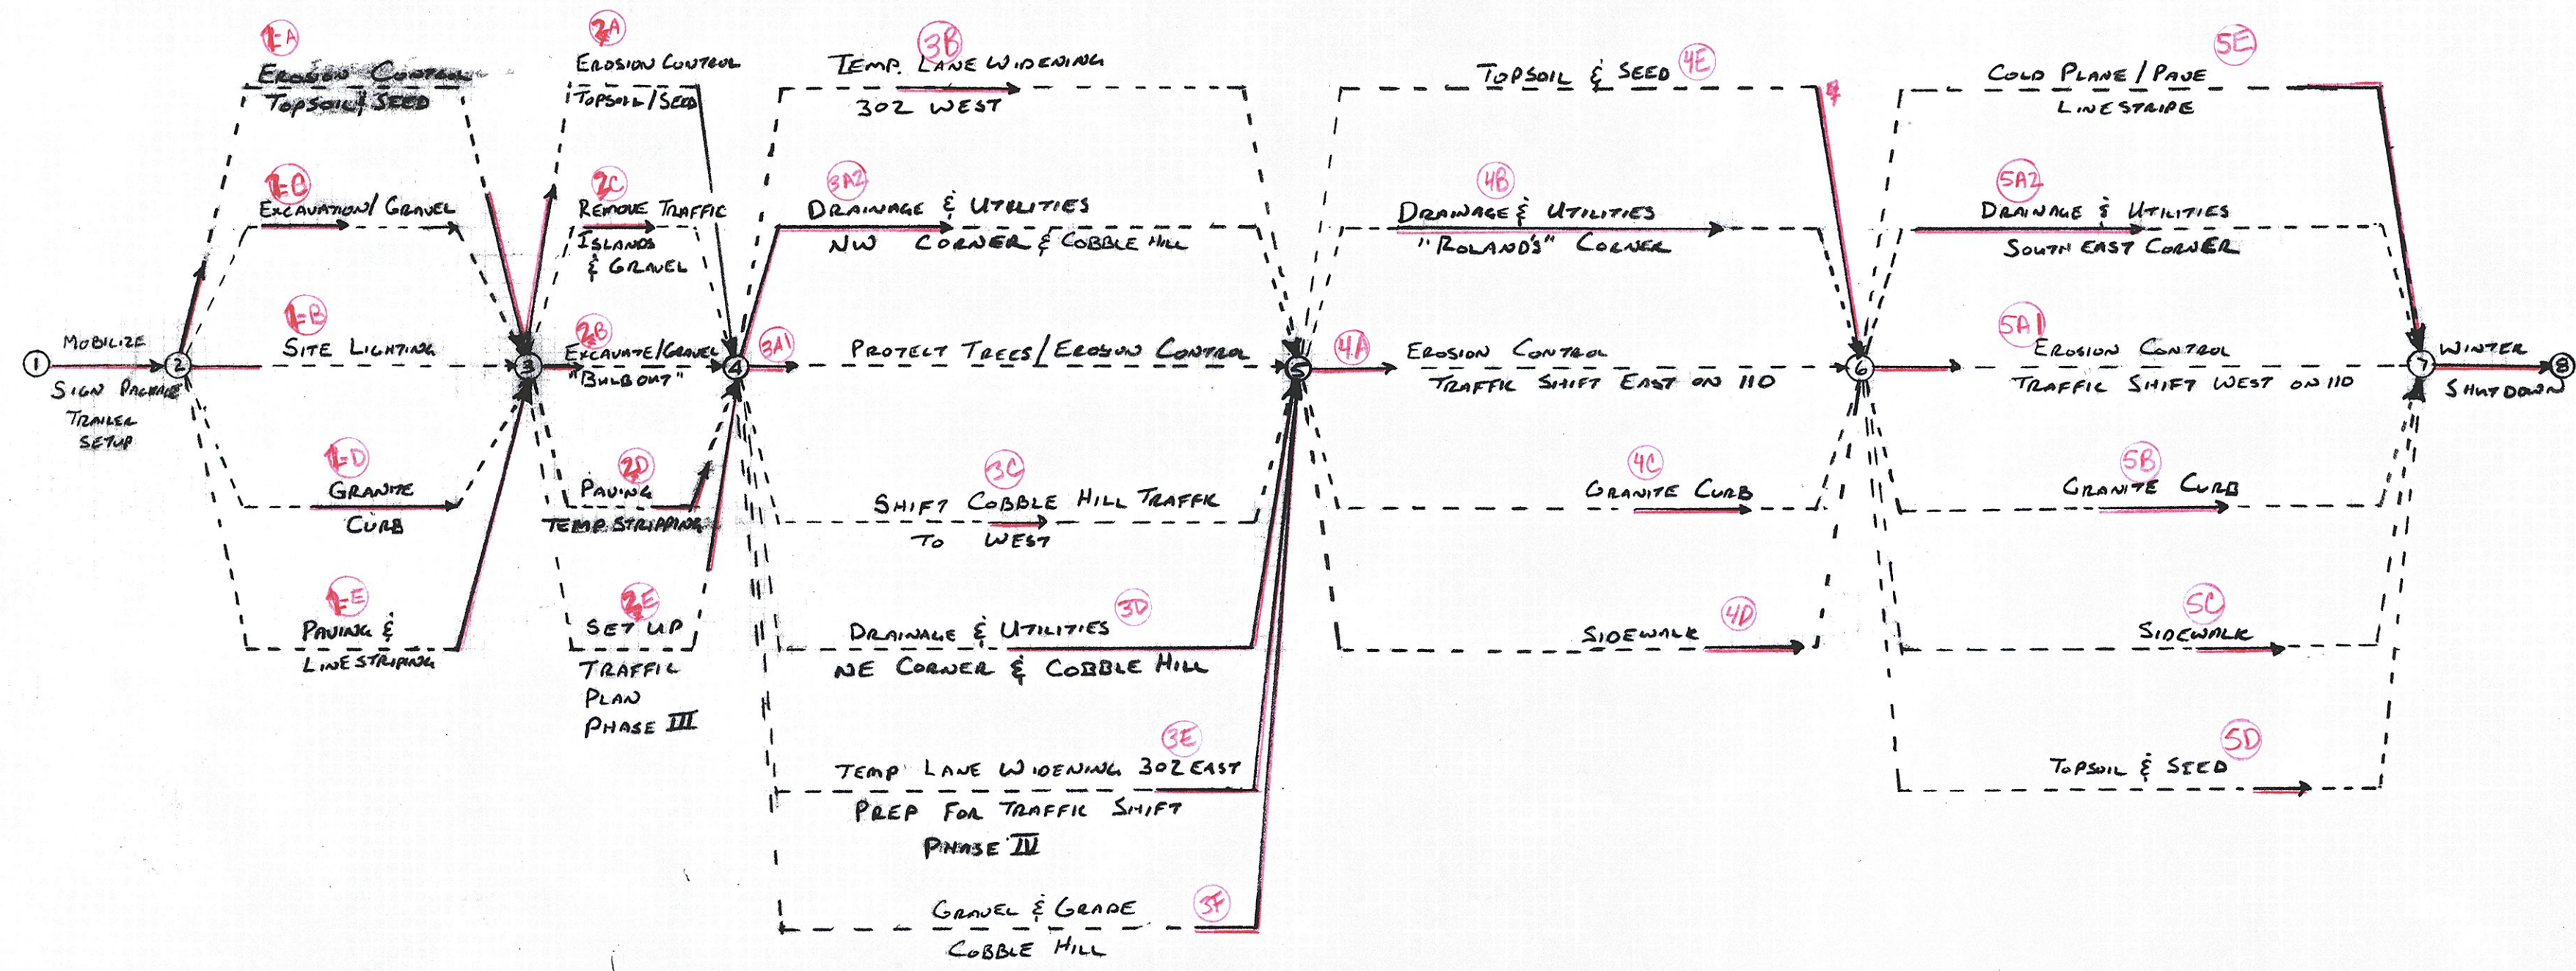 1
MOBILIZE
SIGN PACKAGE
TRAILER
SETUP
2
1-A
EROSION CONTROL
TOPSOIL/SEED
EXCAVATION/GRAVEL
1-B
SITE LIGHTING
1-D
GRANITE
CURB
1-E
PAVING &
LINESTRIPING
3
2A
EROSION CONTROL
TOPSOIL/SEED
2C
REMOVE TRAFFIC
ISLANDS
& GRAVEL
2B
EXCAVATE/GRAVEL
"BULBOUT"
2D
PAVING
TEMP STRIPPING
2E
SET UP
TRAFFIC
PLAN
PHASE III
4
3B
TEMP. LANE WIDENING
302 WEST
3A2
DRAINAGE & UTILITIES
NW CORNER & COBBLE HILL
3A1
PROTECT TREES/EROSION CONTROL
3C
SHIFT COBBLE HILL TRAFFIC
TO WEST
3D
DRAINAGE & UTILITIES
NE CORNER & COBBLE HILL
3E
TEMP LANE WIDENING 302 EAST
PREP FOR TRAFFIC SHIFT
PHASE IV
3F
GRAVEL & GRADE
COBBLE HILL
5
TOPSOIL & SEED 4E
4B
DRAINAGE & UTILITIES
"ROLAND'S" CORNER
4A
EROSION CONTROL
TRAFFIC SHIFT EAST ON 110
4C
GRANITE CURB
4D
SIDEWALK
6
5E
COLD PLANE/PAVE
LINESTRIPE
5A2
DRAINAGE & UTILITIES
SOUTH EAST CORNER
5A1
EROSION CONTROL
TRAFFIC SHIFT WEST ON 110
5B
GRANITE CURB
5C
SIDEWALK
5D
TOPSOIL & SEED
7
WINTER
SHUTDOWN
8